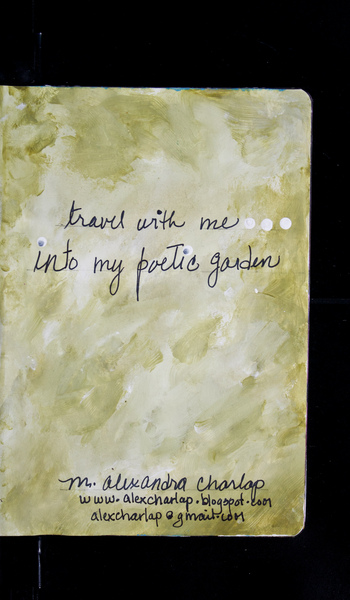 travel with me...
into my poetic garden
m. alexandra charlap
www.alexcharlap.blogspot.com
alexcharlap@gmail.com